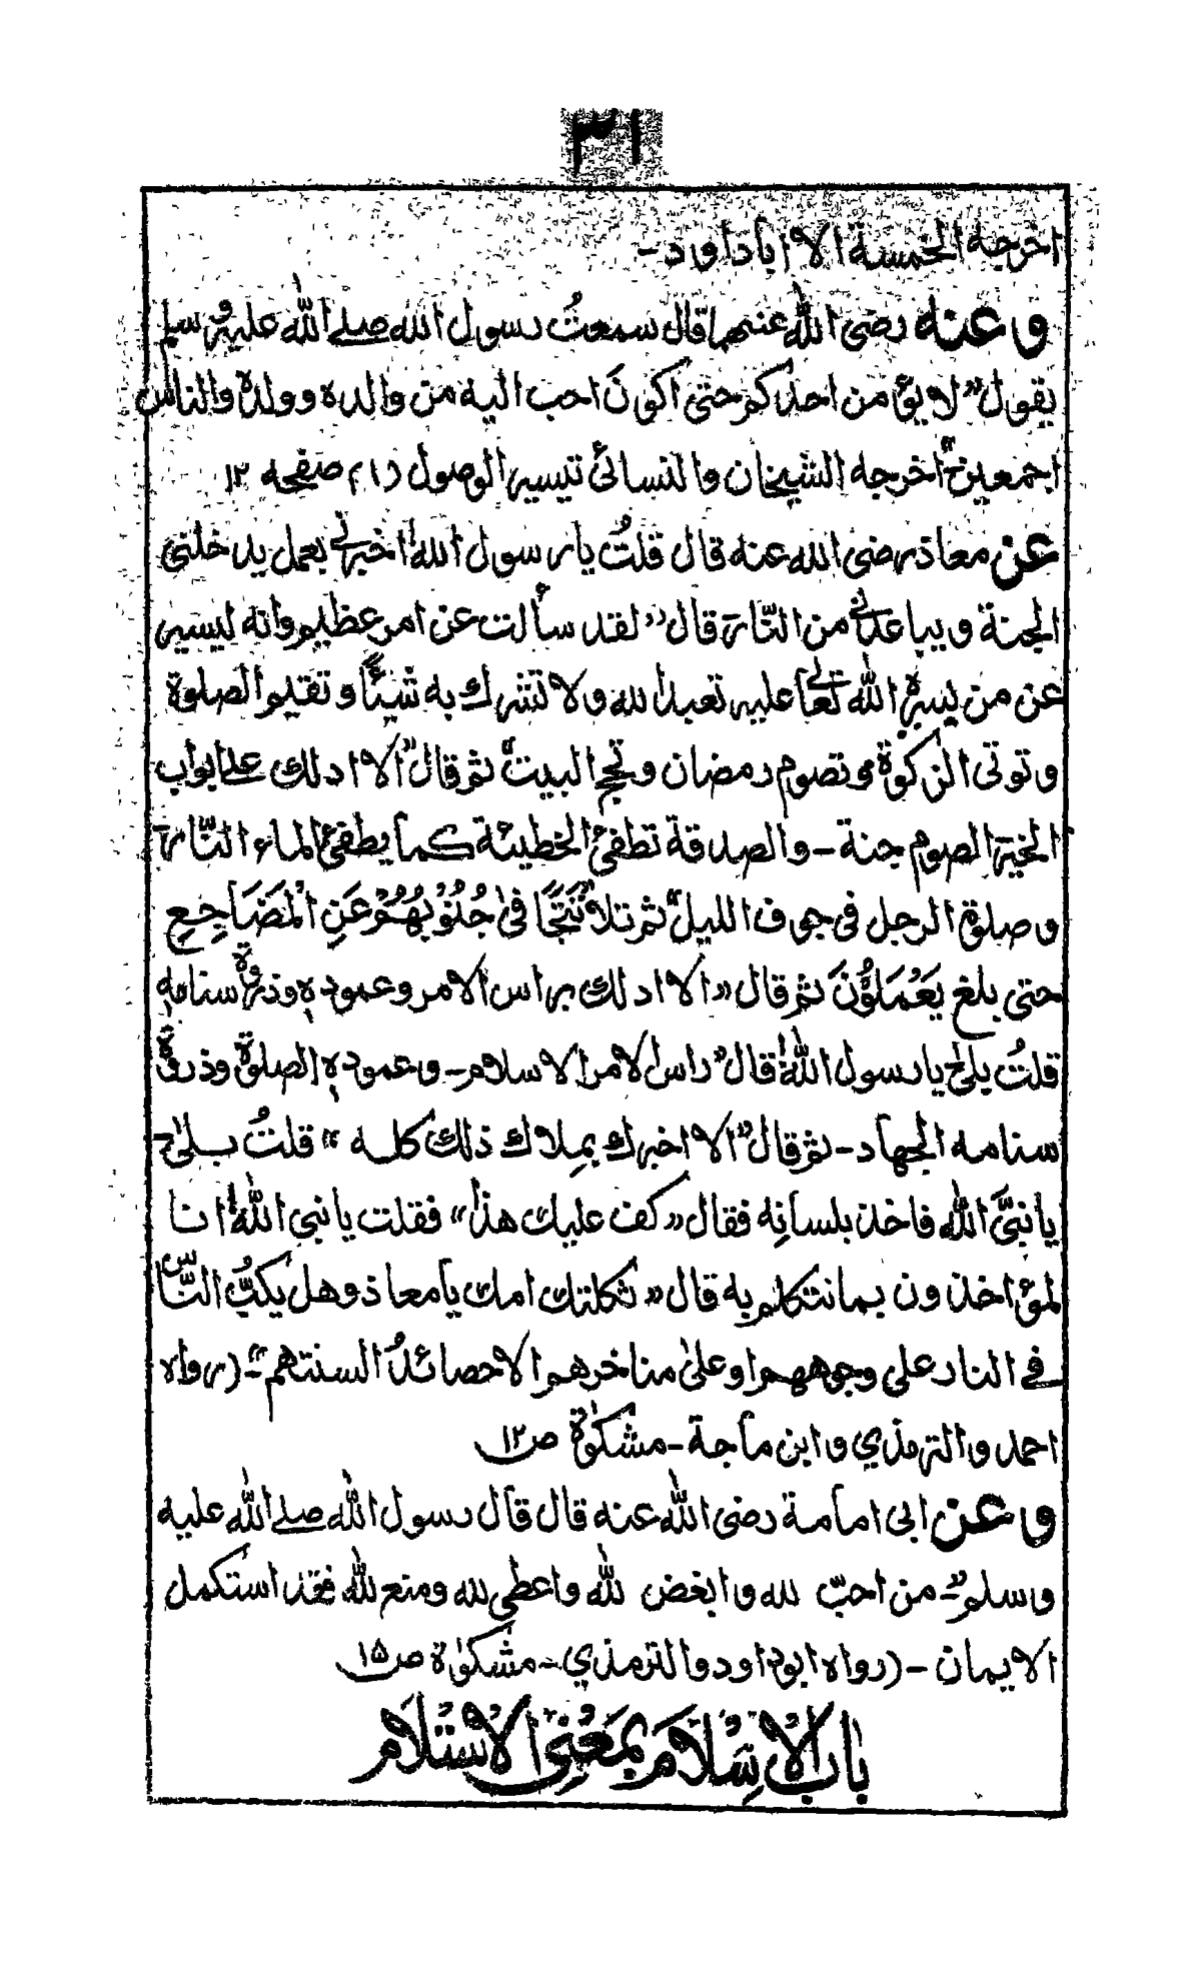 ٣١
اخرجه الخمسة الا ابا داود-
وعنه رضى الله عنهما قال سمعتُ رسول الله صلے الله عليه وسلم
يقول "لا يؤمن احدكم حتى اكونَ احب اليه من والده وولده والناس
اجمعين" اخرجه الشيخان والنسائى تيسير الوصول (١) صفحه ١٢
عن معاذ رضى الله عنه قال قلتُ يا رسول الله! اخبرنى بعمل يدخلنى
الجنة ويباعدنى من النّار؟ قال "لقد سألت عن امر عظيم وانه ليسير
عن من يسره الله تعالى عليه تعبد الله ولا تشرك به شيئًا وتقيم الصلوة
وتوتى الزكوة وتصوم رمضان وتحج البيت" ثم قال "الا ادلك على ابواب
الخير؟ الصوم جنة- والصدقة تطفئ الخطيئة كما يطفئ الماء النّار؟
وصلوة الرجل فى جوف الليل" ثم تلا تَتَجَافىٰ جُنُوْبُهُمْ عَنِ الْمَضَاجِعِ
حتى بلغ يَعْمَلُوْنَ ثم قال "الا ادلك براس الامر وعموده وذروة سنامه؟
قلتُ بلىٰ يا رسول الله! قال "راس الامر الاسلام- وعموده الصلوة وذروة
سنامه الجهاد- ثم قال "الا اخبرك بملاك ذلك كله" قلتُ بلىٰ-
يا نبىَّ الله فاخذ بلسانِه فقال "كف عليك هذا" فقلت يا نبى الله! انا
لمؤاخذون بما نتكلم به قال "ثكلتك امك يا معاذ وهل يكبُّ النّاس
فى النار على وجوههم او علىٰ مناخرهم الا حصائدُ السنتهم"- (رواه
احمد والترمذي وابن ماجة- مشكوٰة ص١٢
وعن ابى امامة رضى الله عنه قال قال رسول الله صلے الله عليه
وسلم "من احبّ لله وابغض لله واعطى لله ومنع لله فقد استكمل
الايمان- (رواه ابوداود والترمذي- مشكوٰة ص١٥
باب الاِسْلَام بمَعْنِى الاستسلام